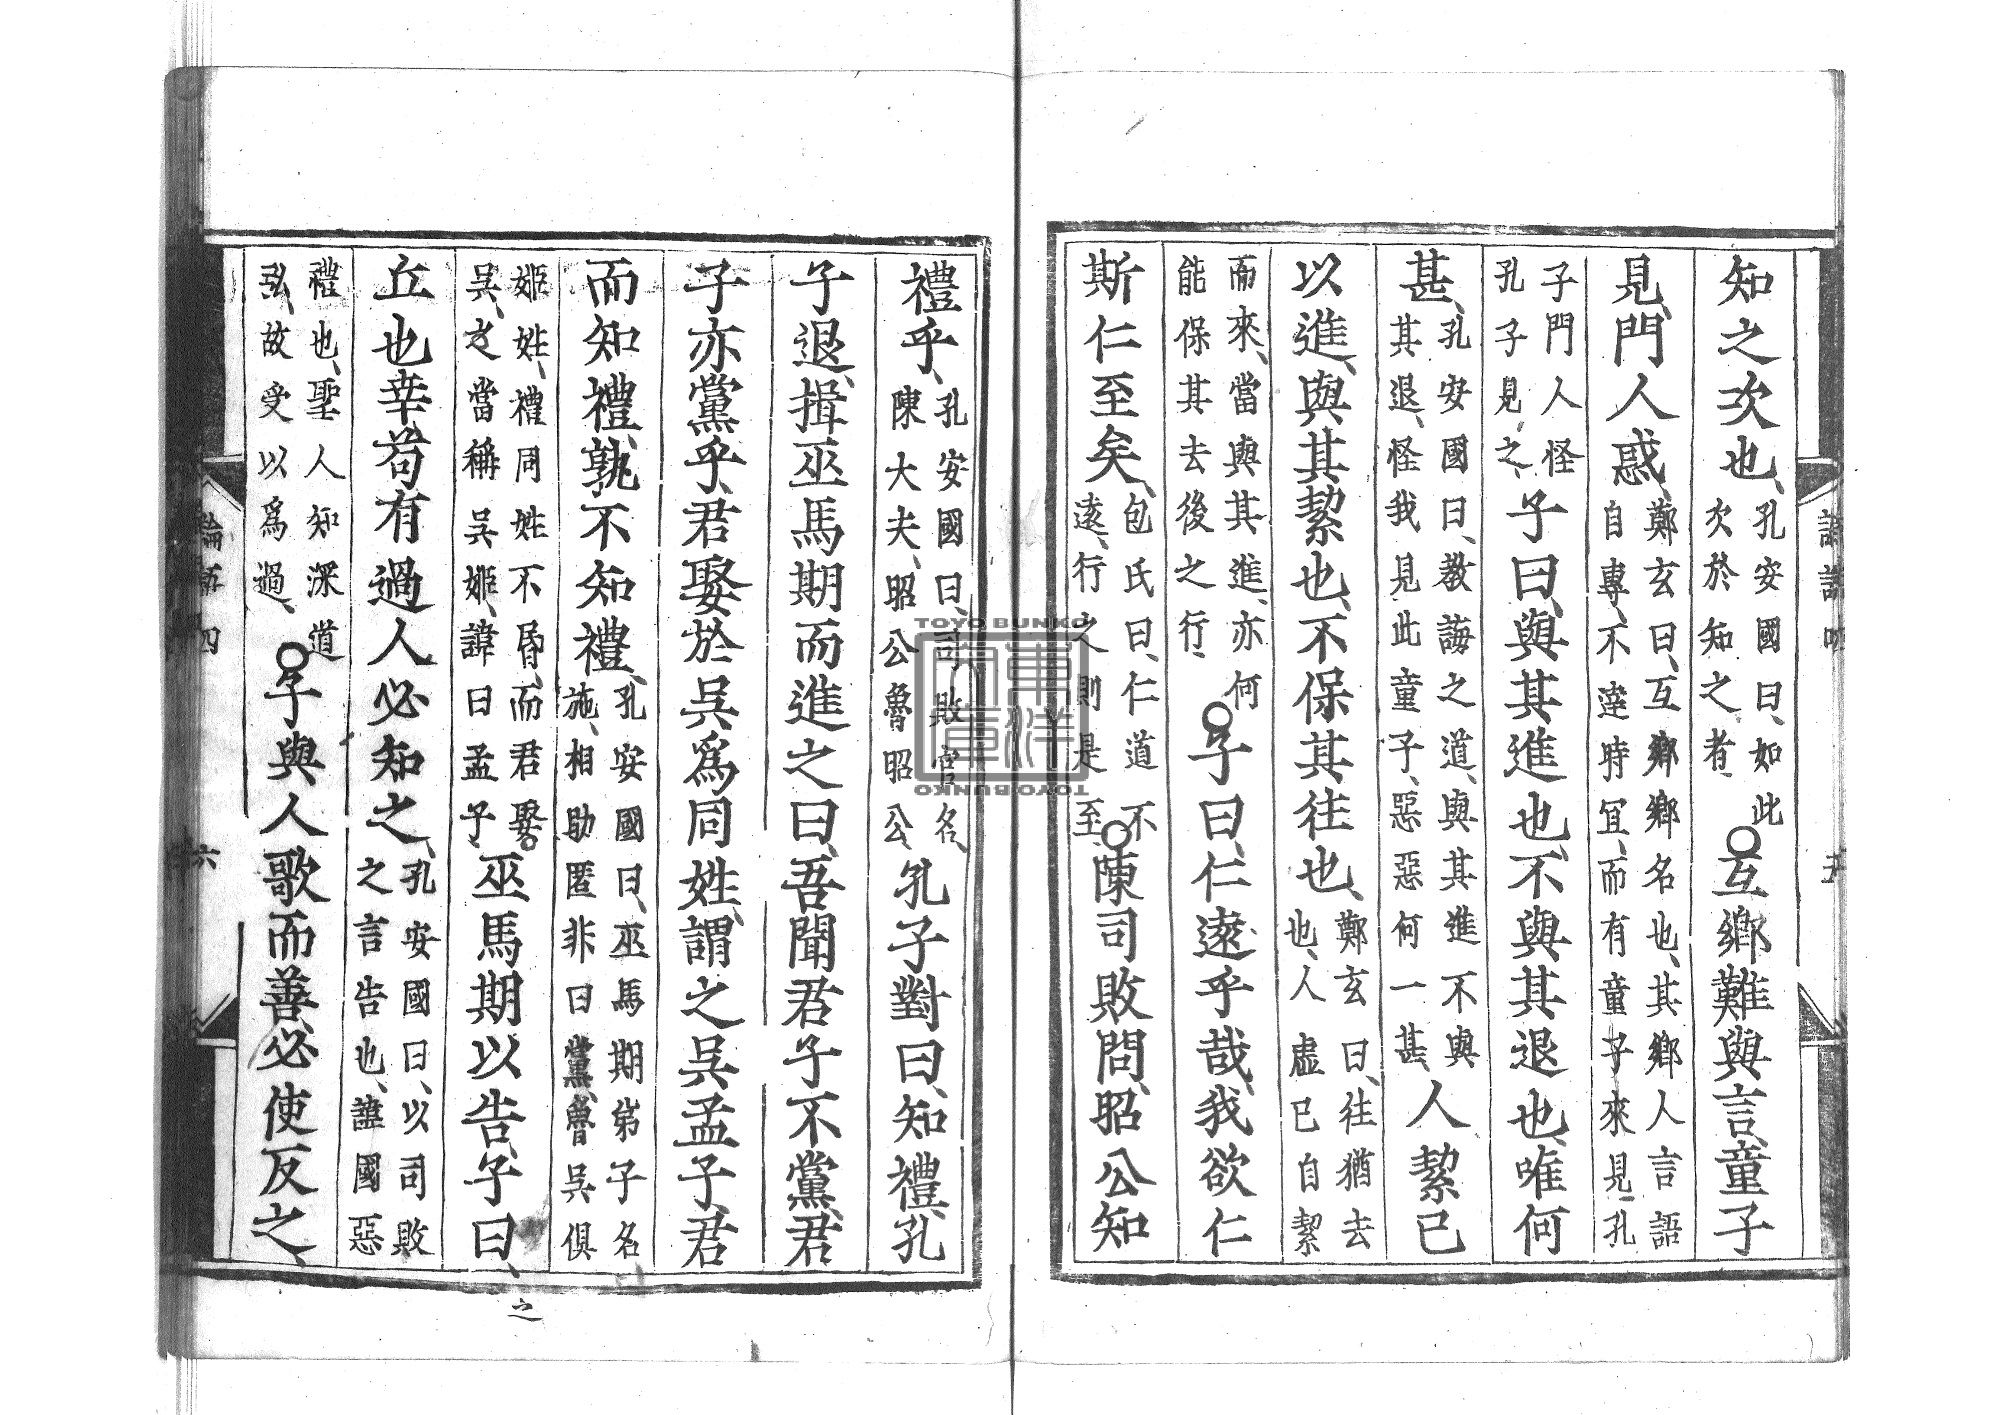 論語四 五
知之次也、孔安國曰、如此次於知之者、○互鄉難與言童子
見、門人惑、鄭玄曰、互鄉鄉名也、其鄉人言語自專、不達時冝、而有童子來見孔
子門人怪孔子見之、子曰、與其進也、不與其退也、唯何
甚、孔安國曰、教誨之道、與其進不與其退、怪我見此童子、惡惡何一甚、人絜已
以進、與其絜也、不保其往也、鄭玄曰、往猶去也、人虛已自絜
而來、當與其進、亦何能保其去後之行、○子曰、仁遠乎哉、我欲仁
斯仁至矣、包氏曰、仁道不遠、行之則是至、○陳司敗問、昭公知
禮乎、孔安國曰、司敗官名、陳大夫、昭公魯昭公、孔子對曰、知禮、孔
子退、揖巫馬期而進之曰、吾聞君子不黨、君
子亦黨乎、君娶於吳爲同姓、謂之吳孟子、君
而知禮、孰不知禮、孔安國曰、巫馬期弟子名施、相助匿非曰黨、魯吳俱
姬姓、禮同姓不昏、而君娶吳、之當稱吳姬、諱曰孟子、巫馬期以告、子曰、
丘也幸、苟有過人必知之、孔安國曰、以司敗之言告也、諱國惡
禮也、聖人知深道弘、故受以爲過、○子與人歌而善、必使反之、
論語四 六
之
TOYO BUNKO
東洋文庫
TOYO BUNKO